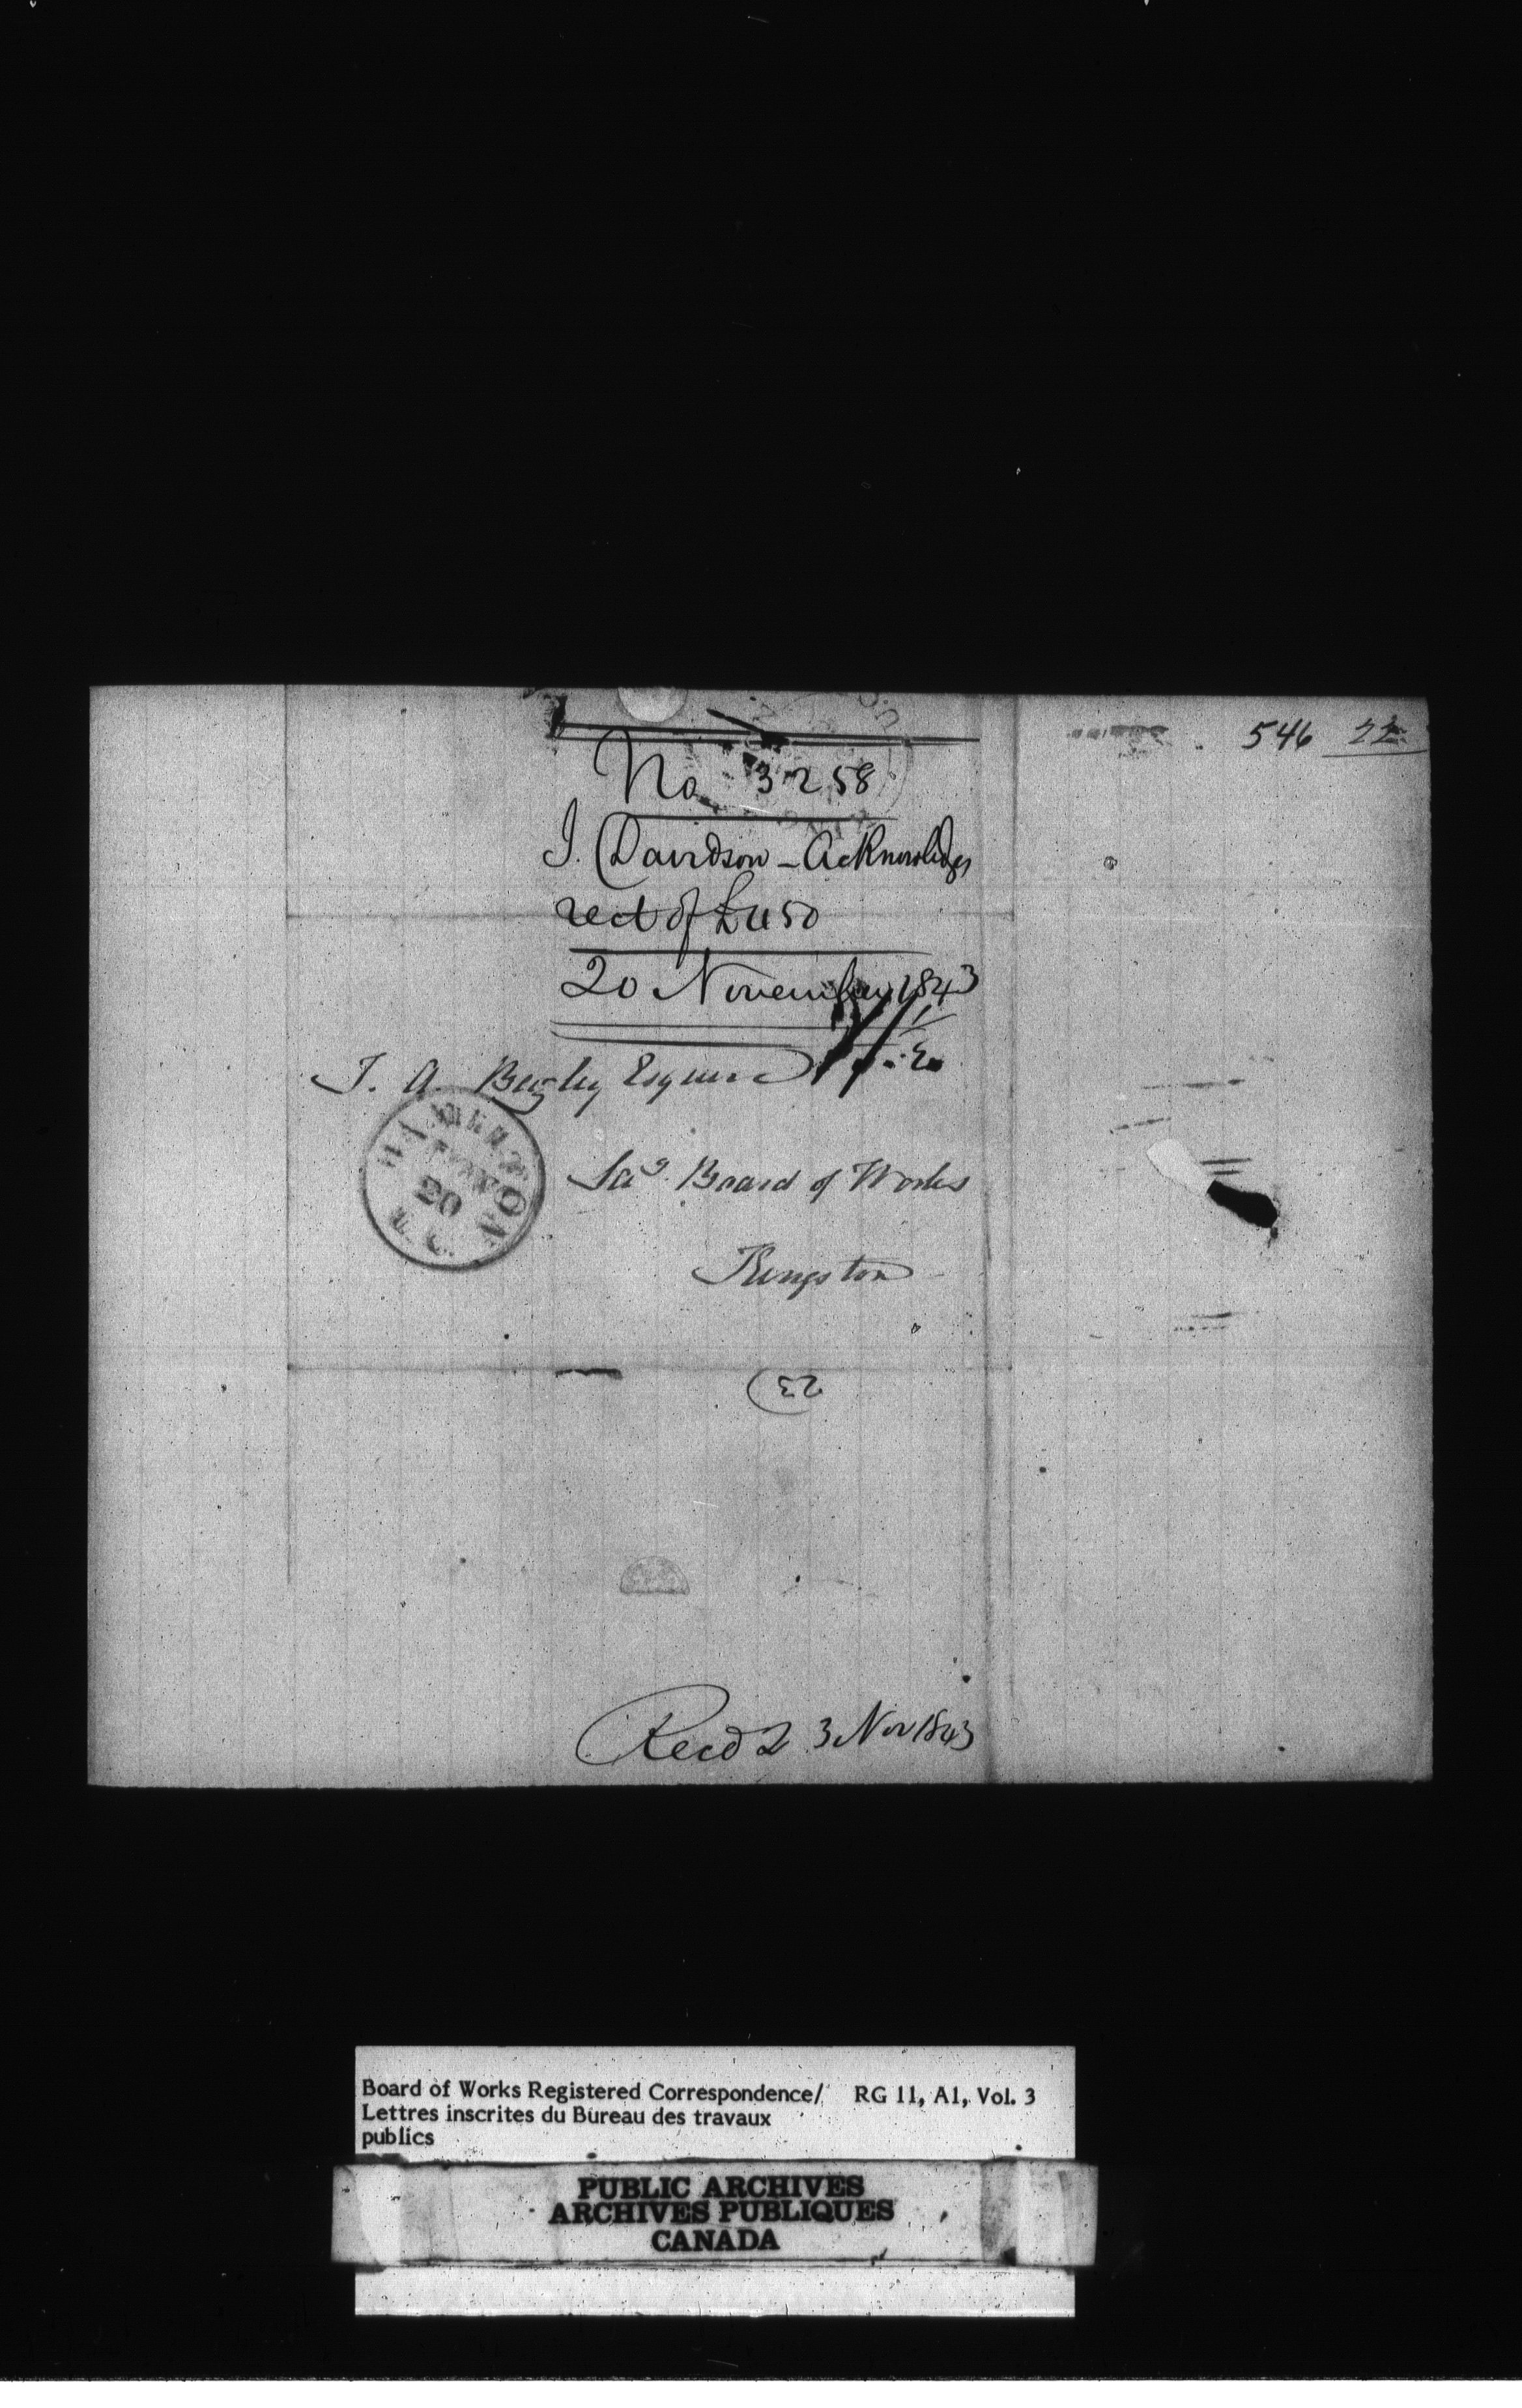 546 22
No 3258
J. Davidson - Acknowledges
rect of £450
20 November 1843
T. A. Begly Esquire
Secy. Board of Works
Kingston
HAMILTON
NOV
20
U. C.
23
Recd 23 Nov 1843
Board of Works Registered Correspondence/ RG 11, A1, Vol. 3
Lettres inscrites du Bureau des travaux
publics
PUBLIC ARCHIVES
ARCHIVES PUBLIQUES
CANADA